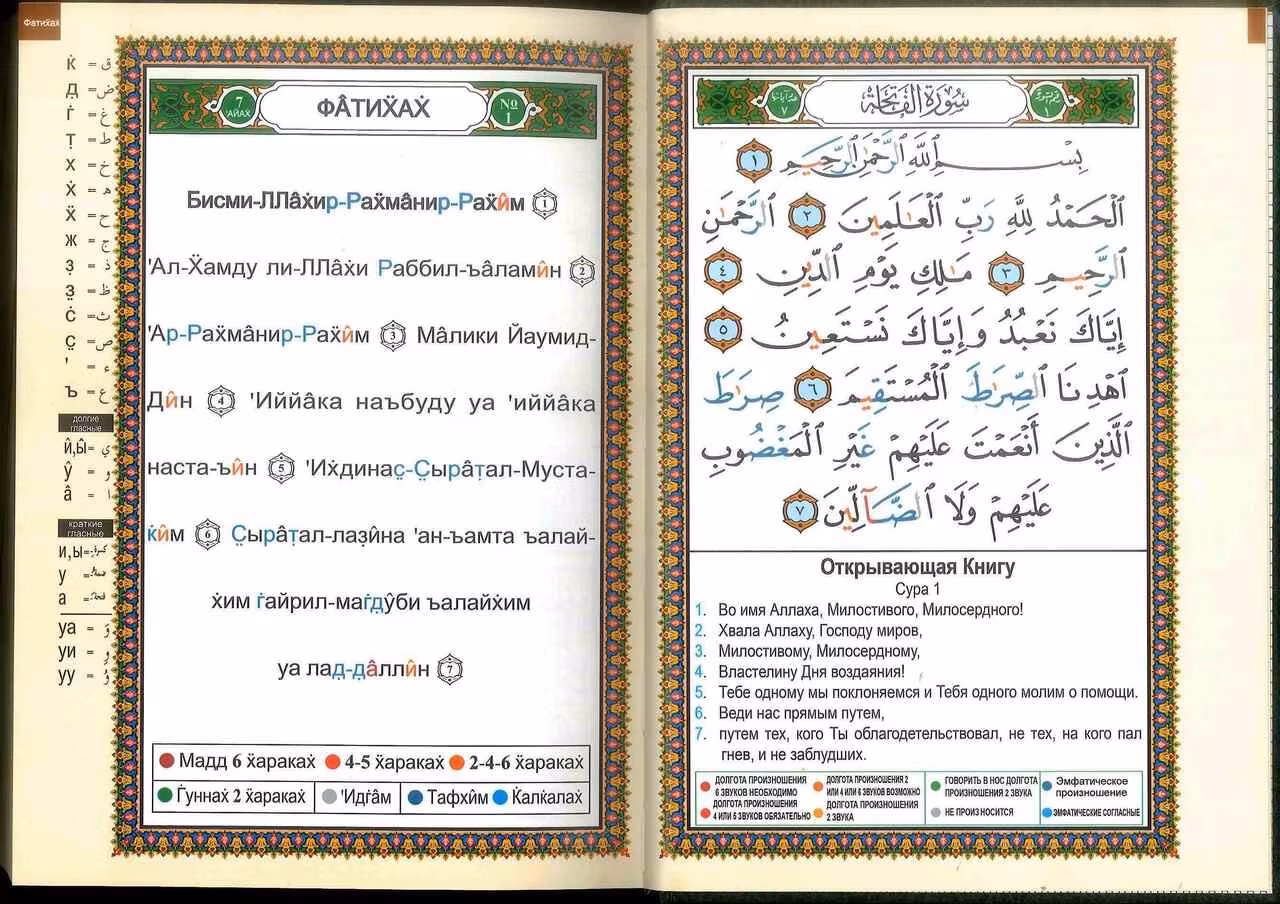 Фатиẍаẋ
к̇ = ق
д̤ = ض
г̇ = غ
т̣ = ط
х = خ
ẋ = ه
ẍ = ح
ж = ج
з̣ = ذ
з̤ = ظ
с̇ = ث
с̤ = ص
' = ء
ъ = ع
долгие гласные
и̂,ы̂ = ي
у̂ = و
â = ا
краткие гласные
и,ы =
у =
а =
уа = وَ
уи = وِ
уу = وُ
7 АЙАХ
ФÂТИẌАẊ
№ 1
Бисми-ЛЛâẋир-Раẍмâнир-Раẍи̂м 1
'Ал-Ẍамду ли-ЛЛâẋи Раббил-ъâлами̂н 2
'Ар-Раẍмâнир-Раẍи̂м 3 Мâлики Йаумид-
Ди̂н 4 'Иййâка наъбуду уа 'иййâка
наста-ъи̂н 5 'Иẋдинас̤-С̤ырâт̣ал-Муста-
к̇и̂м 6 С̤ырâт̣ал-лаз̣и̂на 'ан-ъамта ъалай-
ẋим г̇айрил-маг̇д̤у̂би ъалайẋим
уа лад̤-д̤âлли̂н 7
Мадд 6 ẍаракаẋ 4-5 ẍаракаẋ 2-4-6 ẍаракаẋ
Г̇уннаẋ 2 ẍаракаẋ 'Идг̇âм Тафхи̂м К̇алк̇алаẋ
سُورَةُ الفَاتِحَةِ
بِسْمِ ٱللَّهِ ٱلرَّحْمَٰنِ ٱلرَّحِيمِ ١
ٱلْحَمْدُ لِلَّهِ رَبِّ ٱلْعَٰلَمِينَ ٢ ٱلرَّحْمَٰنِ
ٱلرَّحِيمِ ٣ مَٰلِكِ يَوْمِ ٱلدِّينِ ٤
إِيَّاكَ نَعْبُدُ وَإِيَّاكَ نَسْتَعِينُ ٥
ٱهْدِنَا ٱلصِّرَٰطَ ٱلْمُسْتَقِيمَ ٦ صِرَٰطَ
ٱلَّذِينَ أَنْعَمْتَ عَلَيْهِمْ غَيْرِ ٱلْمَغْضُوبِ
عَلَيْهِمْ وَلَا ٱلضَّآلِّينَ ٧
Открывающая Книгу
Сура 1
1. Во имя Аллаха, Милостивого, Милосердного!
2. Хвала Аллаху, Господу миров,
3. Милостивому, Милосердному,
4. Властелину Дня воздаяния!
5. Тебе одному мы поклоняемся и Тебя одного молим о помощи.
6. Веди нас прямым путем,
7. путем тех, кого Ты облагодетельствовал, не тех, на кого пал
гнев, и не заблудших.
ДОЛГОТА ПРОИЗНОШЕНИЯ 6 ЗВУКОВ НЕОБХОДИМО
ДОЛГОТА ПРОИЗНОШЕНИЯ 2 ИЛИ 4 ИЛИ 6 ЗВУКОВ ВОЗМОЖНО
ГОВОРИТЬ В НОС ДОЛГОТА ПРОИЗНОШЕНИЯ 2 ЗВУКА
Эмфатическое произношение
ДОЛГОТА ПРОИЗНОШЕНИЯ 4 ИЛИ 6 ЗВУКОВ ОБЯЗАТЕЛЬНО
ДОЛГОТА ПРОИЗНОШЕНИЯ 2 ЗВУКА
НЕ ПРОИЗНОСИТСЯ
ЭМФАТИЧЕСКИЕ СОГЛАСНЫЕ